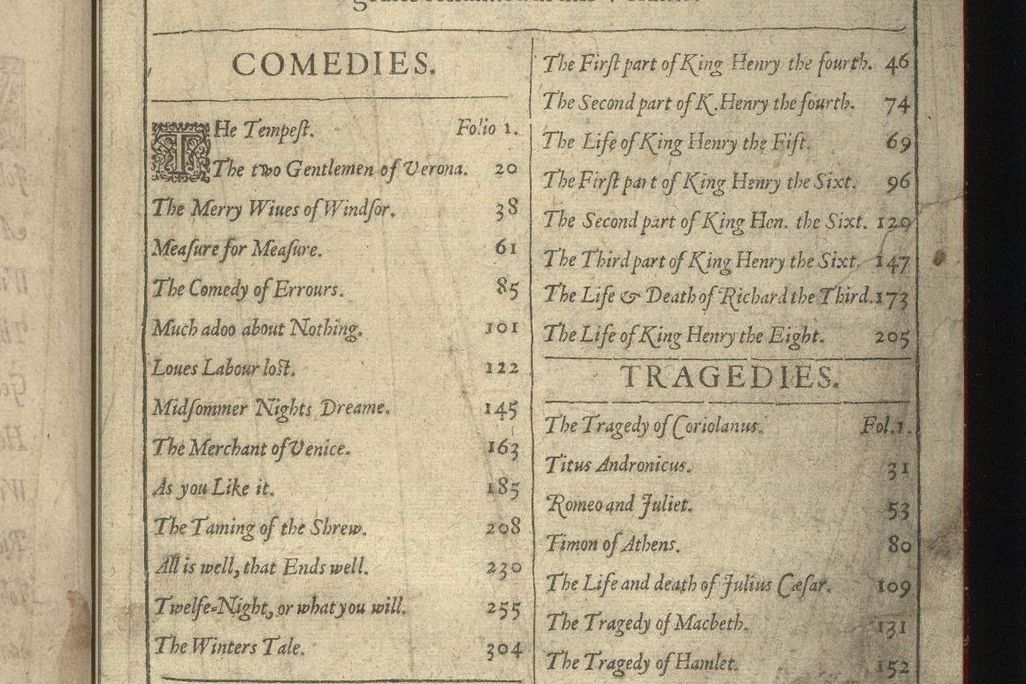 COMEDIES.
THe Tempeſt. Folio 1.
The two Gentlemen of Verona. 20
The Merry Wiues of Windſor. 38
Meaſure for Meaſure. 61
The Comedy of Errours. 85
Much adoo about Nothing. 101
Loues Labour loſt. 122
Midſommer Nights Dreame. 145
The Merchant of Venice. 163
As you Like it. 185
The Taming of the Shrew. 208
All is well, that Ends well. 230
Twelfe-Night, or what you will. 255
The Winters Tale. 304
The Firſt part of King Henry the fourth. 46
The Second part of K. Henry the fourth. 74
The Life of King Henry the Fift. 69
The Firſt part of King Henry the Sixt. 96
The Second part of King Hen. the Sixt. 120
The Third part of King Henry the Sixt. 147
The Life & Death of Richard the Third. 173
The Life of King Henry the Eight. 205
TRAGEDIES.
The Tragedy of Coriolanus. Fol. 1.
Titus Andronicus. 31
Romeo and Juliet. 53
Timon of Athens. 80
The Life and death of Julius Cæſar. 109
The Tragedy of Macbeth. 131
The Tragedy of Hamlet. 152